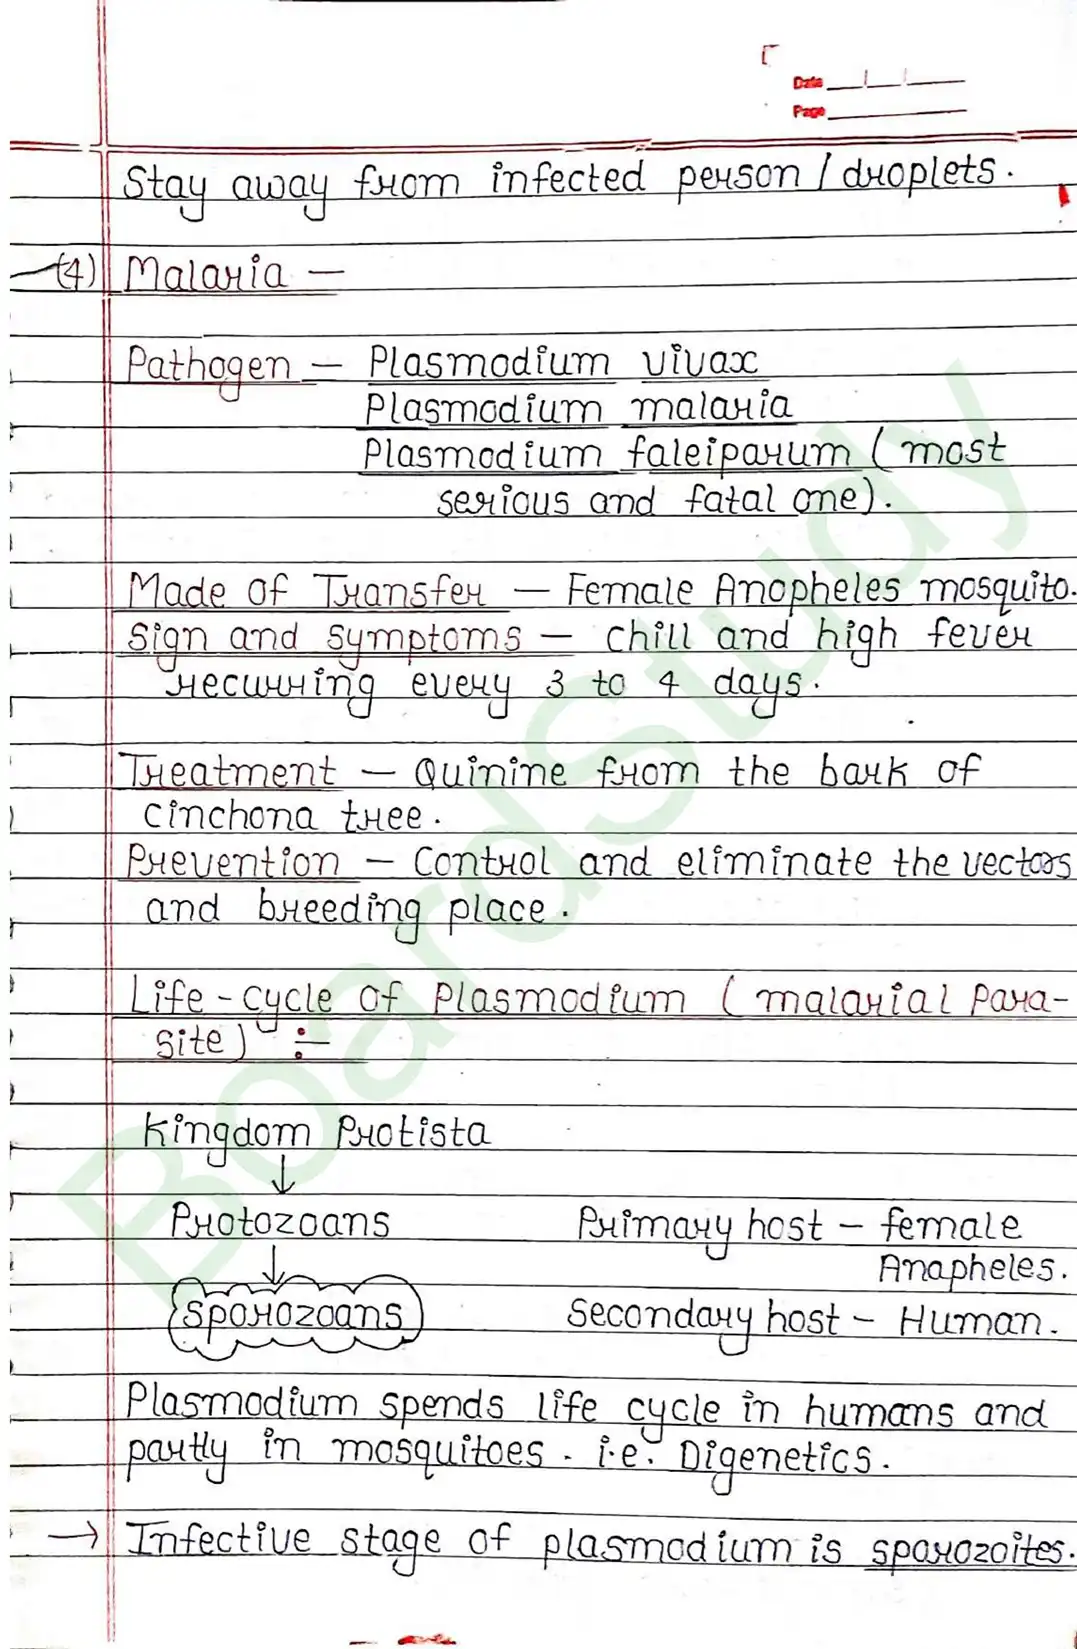 Date
Page
Stay away from infected person / droplets.
(4) Malaria —
Pathogen — Plasmodium vivax
Plasmodium malaria
Plasmodium faleiparum ( most
serious and fatal one).
Made of Transfer — Female Anopheles mosquito.
Sign and symptoms — chill and high fever
recurring every 3 to 4 days.
Treatment — Quinine from the bark of
cinchona tree.
Prevention — Control and eliminate the vectors
and breeding place.
Life-cycle of Plasmodium ( malarial Para-
site) ÷
Kingdom Protista
↓
Protozoans Primary host — female
Anapheles.
↓
Sporozoans Secondary host — Human.
Plasmodium spends life cycle in humans and
partly in mosquitoes. i.e. Digenetics.
→ Infective stage of plasmodium is sporozoites.
BoardStudy